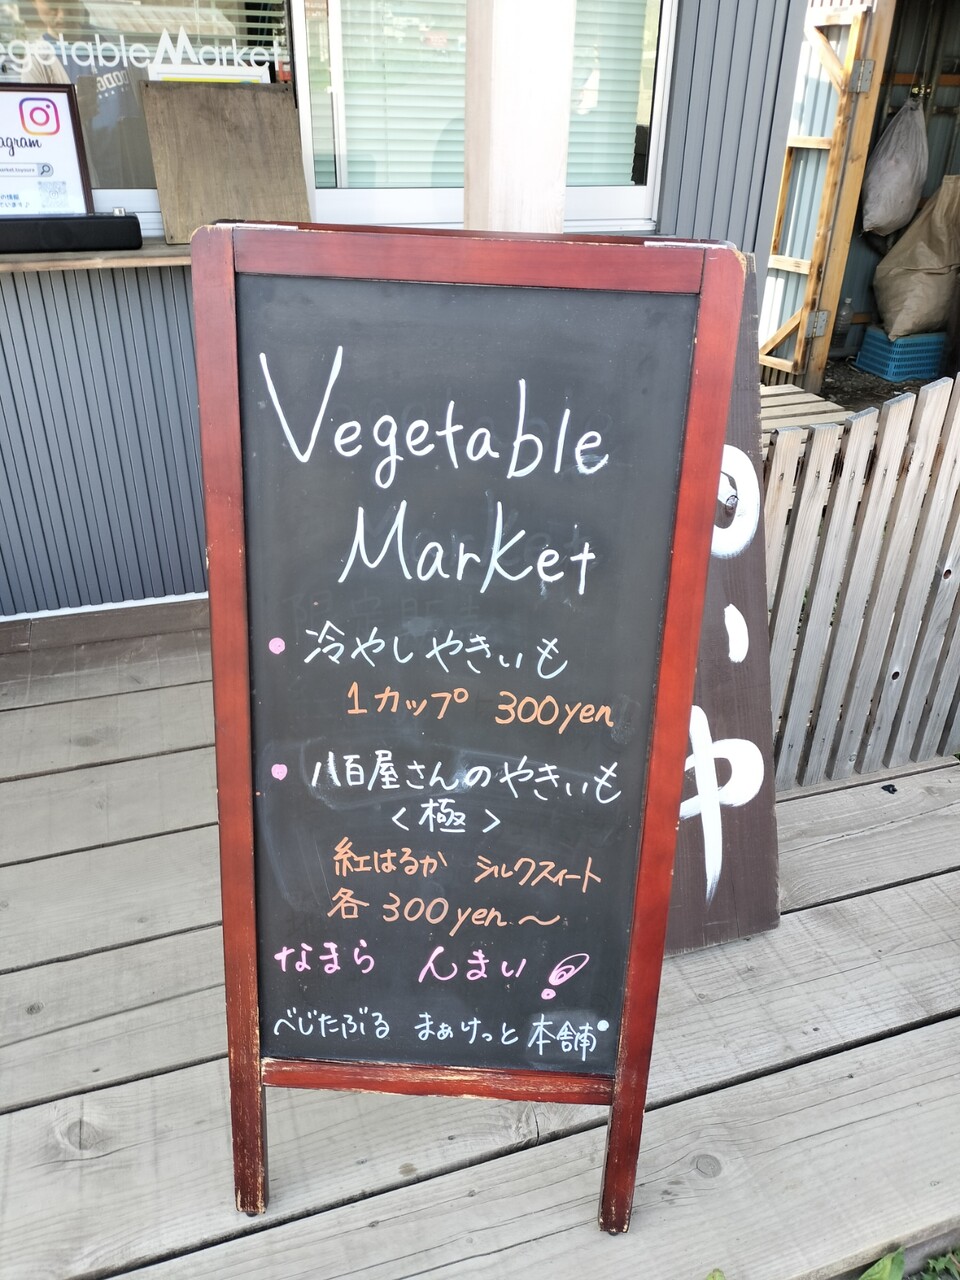 egetableMarket
agram
market.toyoura
の情報
ています♪
Vegetable
Market
・冷やしやきいも
1カップ 300yen
・八百屋さんのやきいも
<極>
紅はるか シルクスイート
各 300yen～
なまら んまい!
べじたぶる まぁけっと 本舗